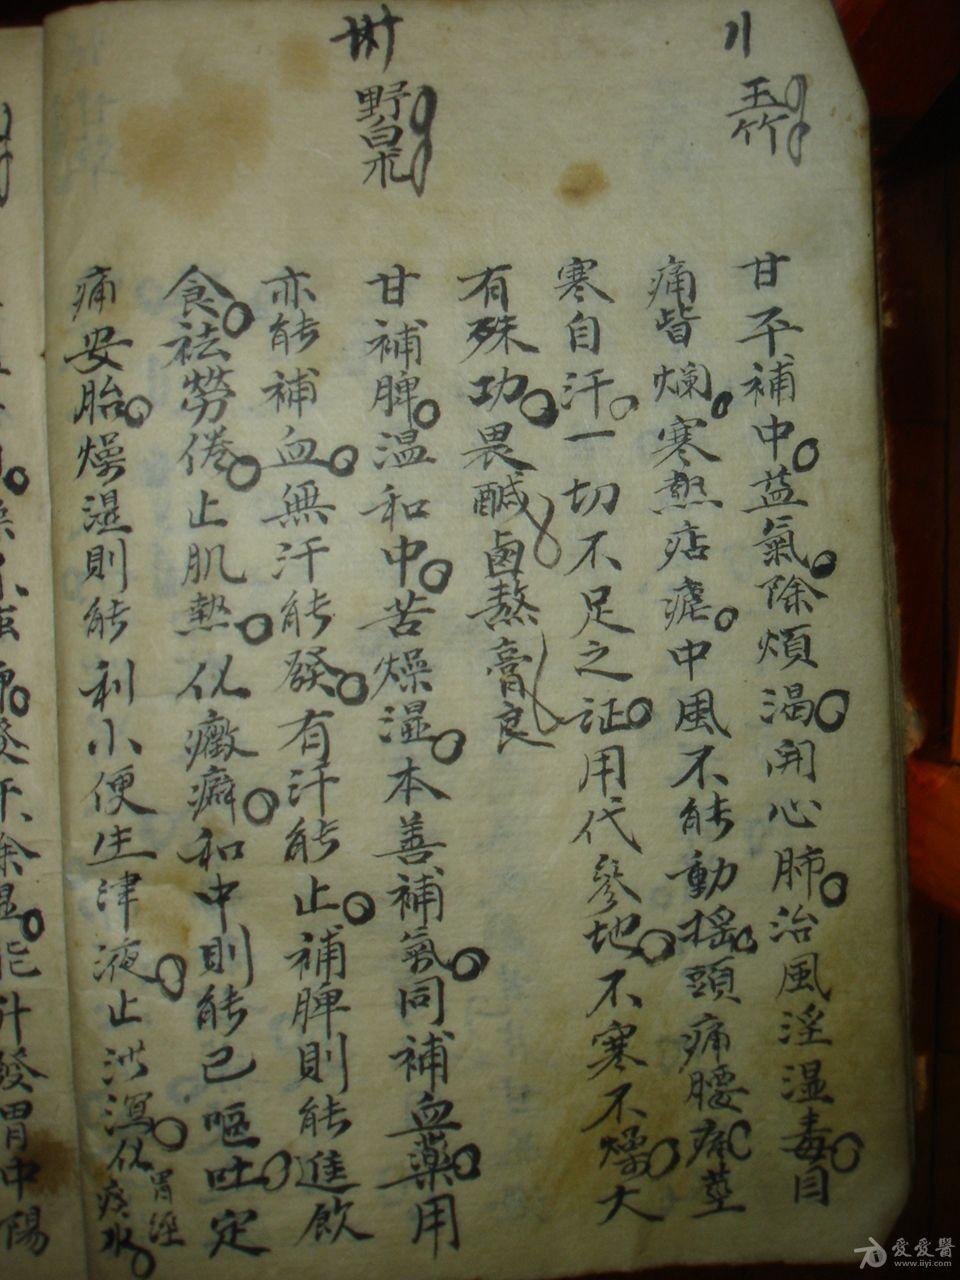 玉竹
甘平補中益氣除煩渴開心肺治風淫湿毒目
痛眥爛寒熱痁瘧中風不能動搖頭痛腰疼莖
寒自汗一切不足之证用代參地不寒不燥大
有殊功畏鹹鹵熬膏良
野白朮
甘補脾温和中苦燥湿本善補氣同補血藥用
亦能補血無汗能發有汗能止補脾則能進飲
食祛勞倦止肌熱化癥癖和中則能已嘔吐定
痛安胎燥湿則能利小便生津液止泄瀉化胃經痰水
愛愛醫
www.iiyi.com